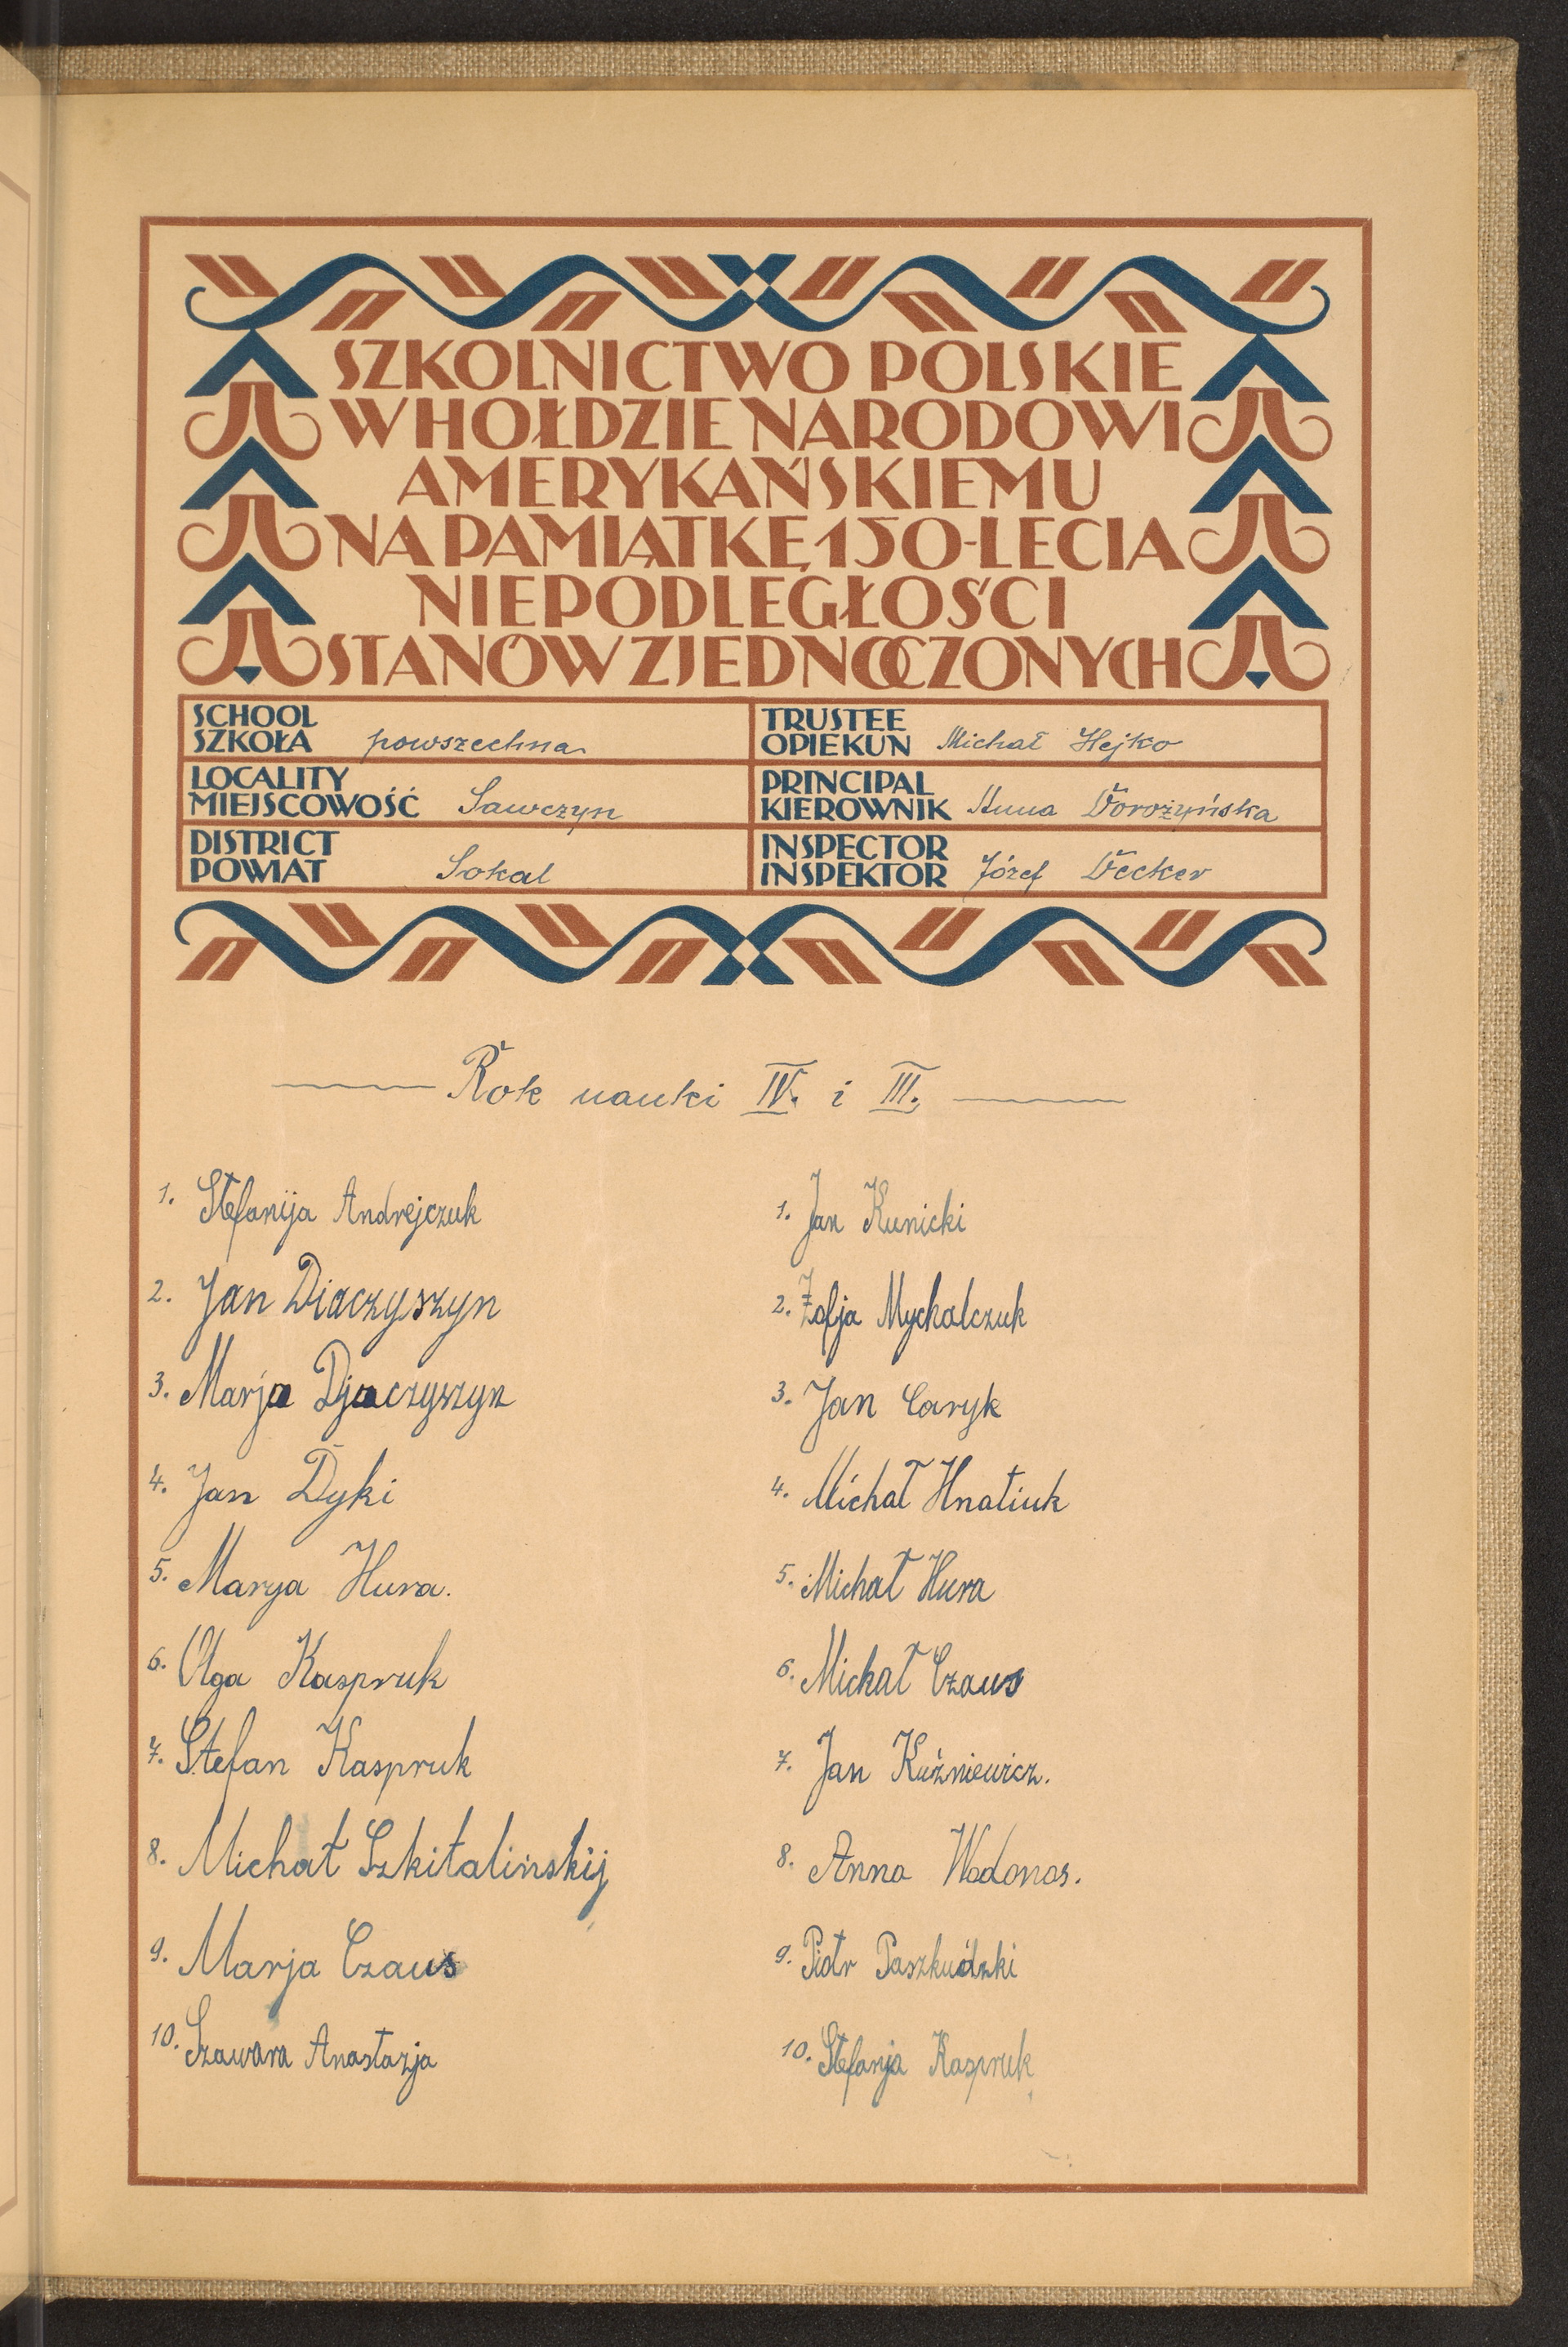 SZKOLNICTWO POLSKIE
W HOŁDZIE NARODOWI
AMERYKAŃSKIEMU
NA PAMIĄTKĘ 150-LECIA
NIEPODLEGŁOŚCI
STANÓW ZJEDNOCZONYCH
SCHOOL
SZKOŁA powszechna
LOCALITY
MIEJSCOWOŚĆ Sawczyn
DISTRICT
POWIAT Sokal
TRUSTEE
OPIEKUN Michał Hejko
PRINCIPAL
KIEROWNIK Anna Dorożyńska
INSPECTOR
INSPEKTOR Józef Decker
Rok nauki IV. i III.
1. Stefanija Andrejczuk
2. Jan Diaczyszyn
3. Marja Djaczyszyn
4. Jan Dyki
5. Marya Hura.
6. Olga Kaspruk
7. Stefan Kaspruk
8. Michał Szkitalińskij
9. Marja Czaus
10. Szawara Anastazja
1. Jan Kunicki
2. Zofja Mychalczuk
3. Jan Caryk
4. Michał Hnatiuk
5. Michał Hura
6. Michał Czaus
7. Jan Kuźniewicz.
8. Anna Wodonos.
9. Piotr Paszkudzki
10. Stefanja Kaspruk